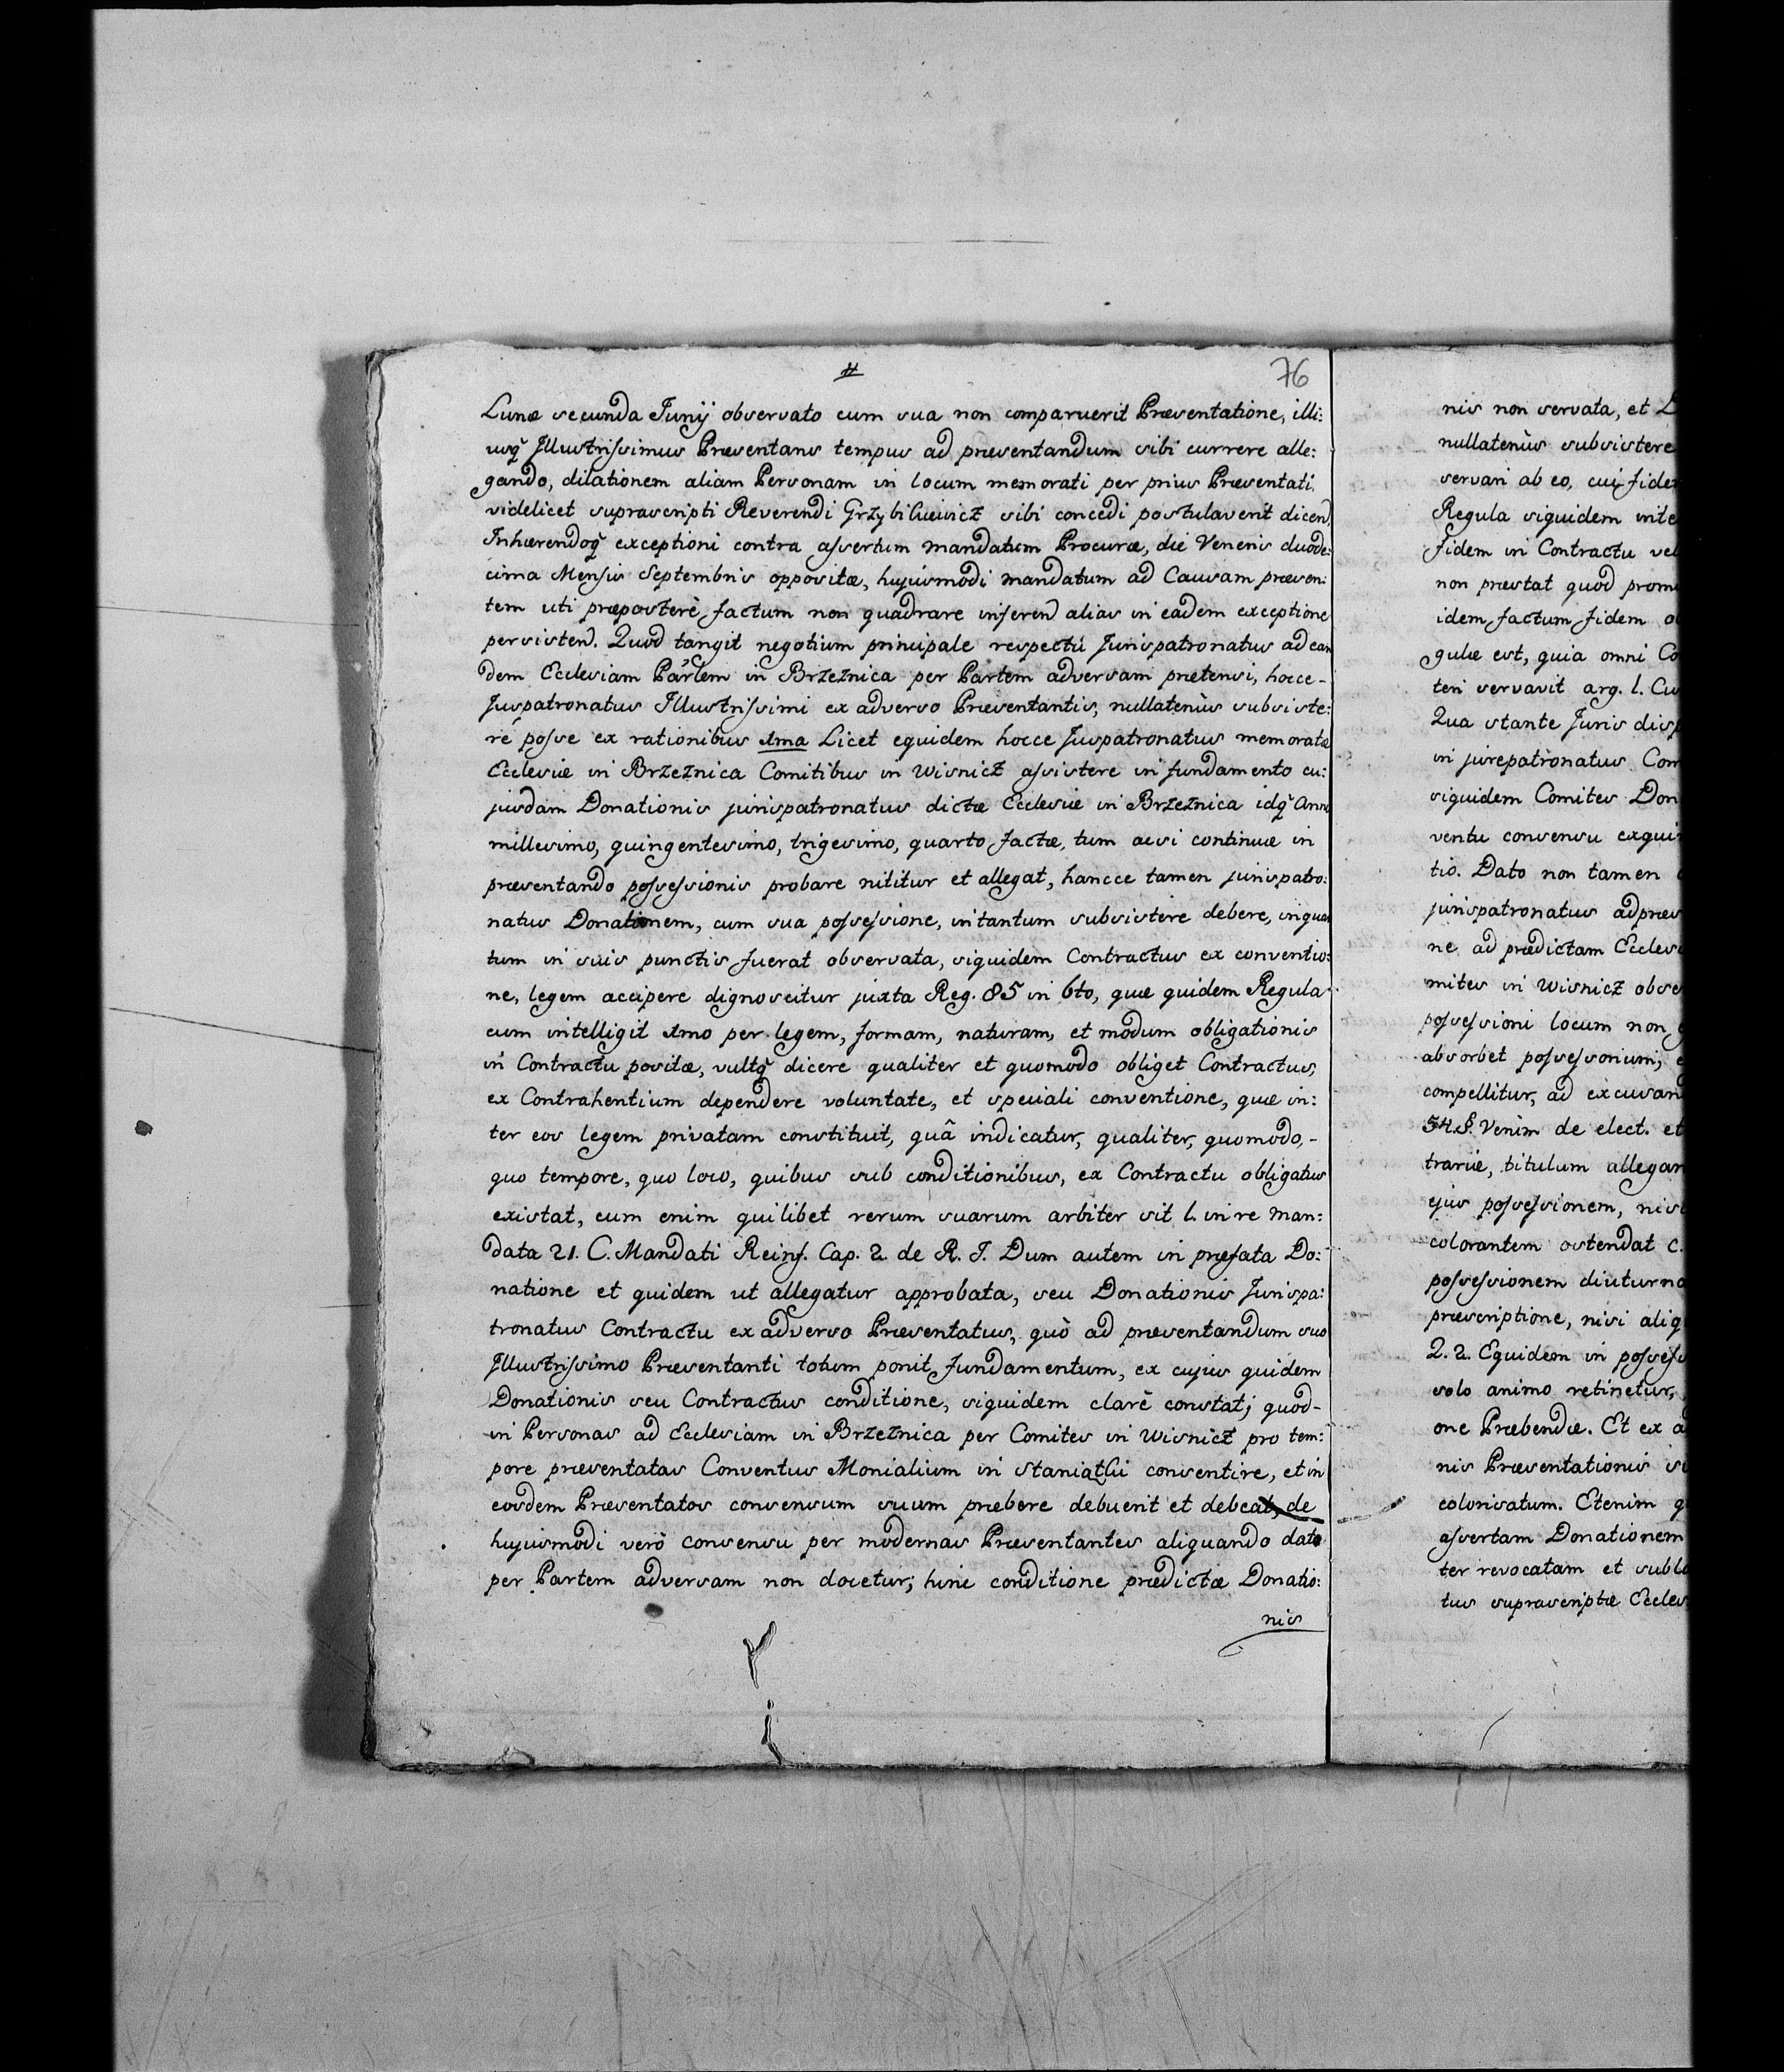 #
76
Lunæ secunda Junÿ observato cum sua non comparuerit Præsentatione, illi:
usq̃ Illustrissimus Præsentans tempus ad præsentandum sibi currere alle:
gando, dilationem aliam Personam in locum memorati per prius Præsentati,
videlicet suprascripti Reverendi Grzybikiewicz sibi concedi postulaverit dicend.
Inhærendoq̃ exceptioni contra assertum mandatum Procuræ, die Veneris duode:
cima Mensis Septembris oppositæ, hujusmodi mandatum ad Causam præsen:
tem uti præposterè factum non quadrare inferend alias in eadem exceptione
persistend. Quod tangit negotium principale respectu Jurispatronatus ad ean
dem Ecclesiam Parlem in Brzeznica per Partem adversam prætensi, hocce-
Juspatronatus Illustrissimi ex adverso Præsentantis, nullatenùs subsiste:
re posse ex rationibus 1ma Licet equidem hocce Juspatronatus memoratæ
Ecclesiæ in Brzeznica Comitibus in Wisnicz assistere in fundamento cu:
jusdam Donationis jurispatronatus dictæ Ecclesiæ in Brzeznica idq̃ Anno
millesimo, quingentesimo, trigesimo, quarto factæ, tum acsi continuæ in
præsentando possessionis probare nititur et allegat, hancce tamen jurispatro:
natus Donationem, cum sua possessione, intantum subsistere debere, inquan
tum in suis punctis fuerat observata, siquidem Contractus ex conventio:
ne, legem accipere dignoscitur juxta Reg. 85 in 6to, quæ quidem Regula
cum intelligit 1mo per legem, formam, naturam, et modum obligationis
in Contractu positæ, vultq̃ dicere qualiter et quomodo obliget Contractus,
ex Contrahentium dependere voluntate, et speciali conventione, quæ in:
ter eos legem privatam constituit, quâ indicatur, qualiter, quomodo,-
quo tempore, quo loco, quibus sub conditionibus, ex Contractu obligatus
existat, cum enim quilibet rerum suarum arbiter sit l. in re man:
data 21. C. Mandati Reinf. Cap. 2. de R. J. Dum autem in præfata Do:
natione et quidem ut allegatur approbata, seu Donationis Jurispa:
tronatus Contractu ex adverso Præsentatus, quò ad præsentandum suo
Illustrissimo Præsentanti totum ponit fundamentum, ex cujus quidem
Donationis seu Contractus conditione, siquidem clarè constat; quod-
in Personas ad Ecclesiam in Brzeznica per Comites in Wisnicz pro tem:
pore præsentatas Conventus Monialium in Staniatki consentire, et in
eosdem Præsentatos consensum suum præbere debuerit et debeat, de
hujusmodi verò consensu per modernas Præsentantes aliquando dato
per Partem adversam non docetur; hinc conditione prædictæ Donatio:
nis
nis non servata, et
nullatenùs subsistere
servari ab eo, cui fidem
Regula siquidem inte
fidem in Contractu vel
non præstat quod prom
idem factum fidem
gulæ est, quia omni Co
teri servavit arg. l. Cu
Qua stante Juris disp
in jurepatronatus Com
siquidem Comites Don
ventu consensu exqui
tio. Dato non tamen
jurispatronatus ad præs
ne ad prædictam Ecclesi
mites in Wisnicz obse
possessioni locum non
absorbet possessorium,
compellitur, ad excusand
54. S. Venim de elect. et
trariæ, titulum allegan
ejus possessionem, nisi
colorantem ostendat C.
possessionem diuturna
præscriptione, nisi aliq
2. 2. Equidem in possess
solo animo retinetur,
one Præbendæ. Et ex a
nis Præsentationis
colorisatum. Etenim q
assertam Donationem
ter revocatam et subla
tus suprascriptæ Eccles